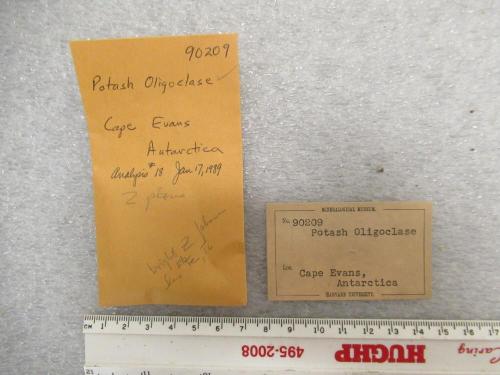 90209
Potash Oligoclase
Cape Evans
Antarctica
Analysis # 18 Jan 17, 1989
2 pieces
MINERALOGICAL MUSEUM,
No. 90209
Potash Oligoclase
Loc. Cape Evans,
Antarctica
HARVARD UNIVERSITY.
CM 1 2 3 4 5 6 7 8 9 10 11 12 13 14 15 16 17
HUGHP
495-2008